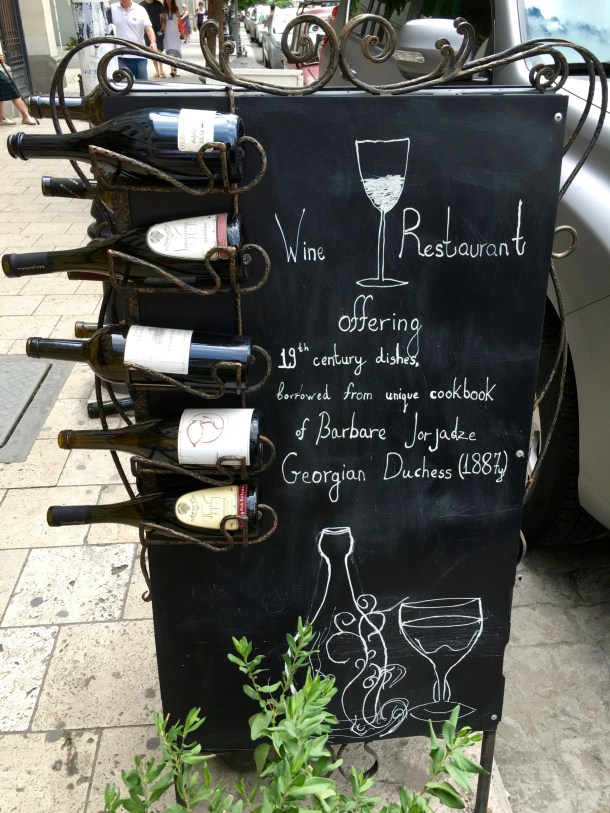 Wine Restaurant
offering
19th century dishes,
borrowed from unique cookbook
of Barbare Jorjadze
Georgian Duchess (1887y)